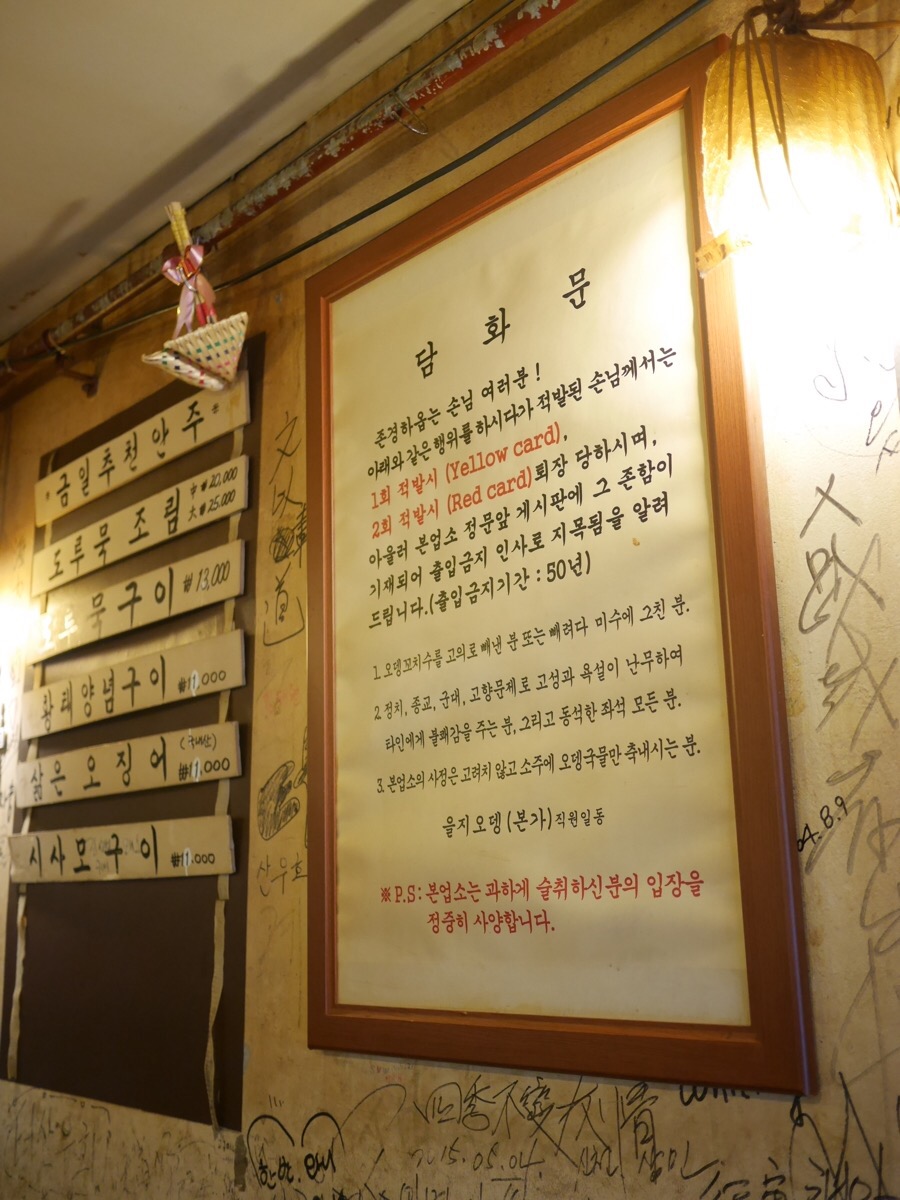 * 금일추천안주 *
도루묵 조림 中 ₩20,000
大 ₩25,000
도루묵구이 ₩13,000
황태양념구이 ₩11,000
삶은오징어 (국내산) ₩11,000
시사모구이 ₩11,000
담 화 문
존경하옵는 손님 여러분 !
아래와 같은행위를하시다가 적발된 손님께서는
1회 적발시 (Yellow card),
2회 적발시 (Red card)퇴장 당하시며,
아울러 본업소 정문앞 게시판에 그 존함이
기재되어 출입금지 인사로 지목됨을 알려
드립니다.(출입금지기간 : 50년)
1. 오뎅꼬치수를 고의로 빼낸 분 또는 빼려다 미수에 그친 분.
2. 정치, 종교, 군대, 고향문제로 고성과 욕설이 난무하여
타인에게 불쾌감을 주는 분, 그리고 동석한 좌석 모든 분.
3. 본업소의 사정은 고려치 않고 소주에 오뎅국물만 축내시는 분.
을지오뎅(본가)직원일동
※ P.S : 본업소는 과하게 술취하신분의 입장을
정중히 사양합니다.
道
산무호
04.8.9
四季不變
2015.05.04.